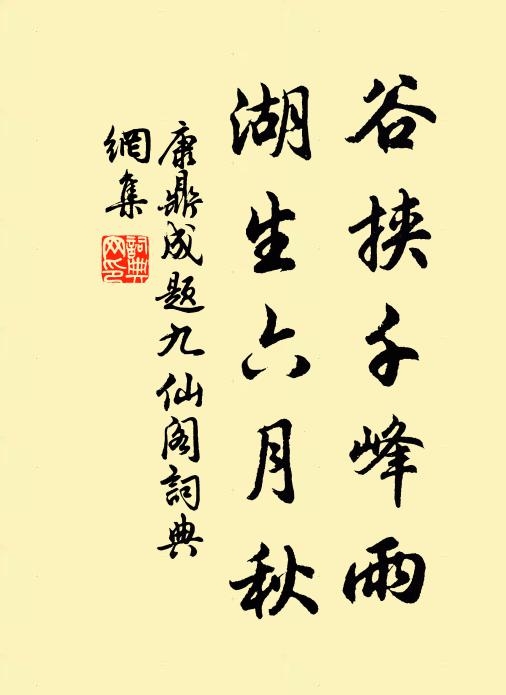 谷挟千峰雨
湖生六月秋
康鼎成题九仙阁詞典
網集
詞典
网印